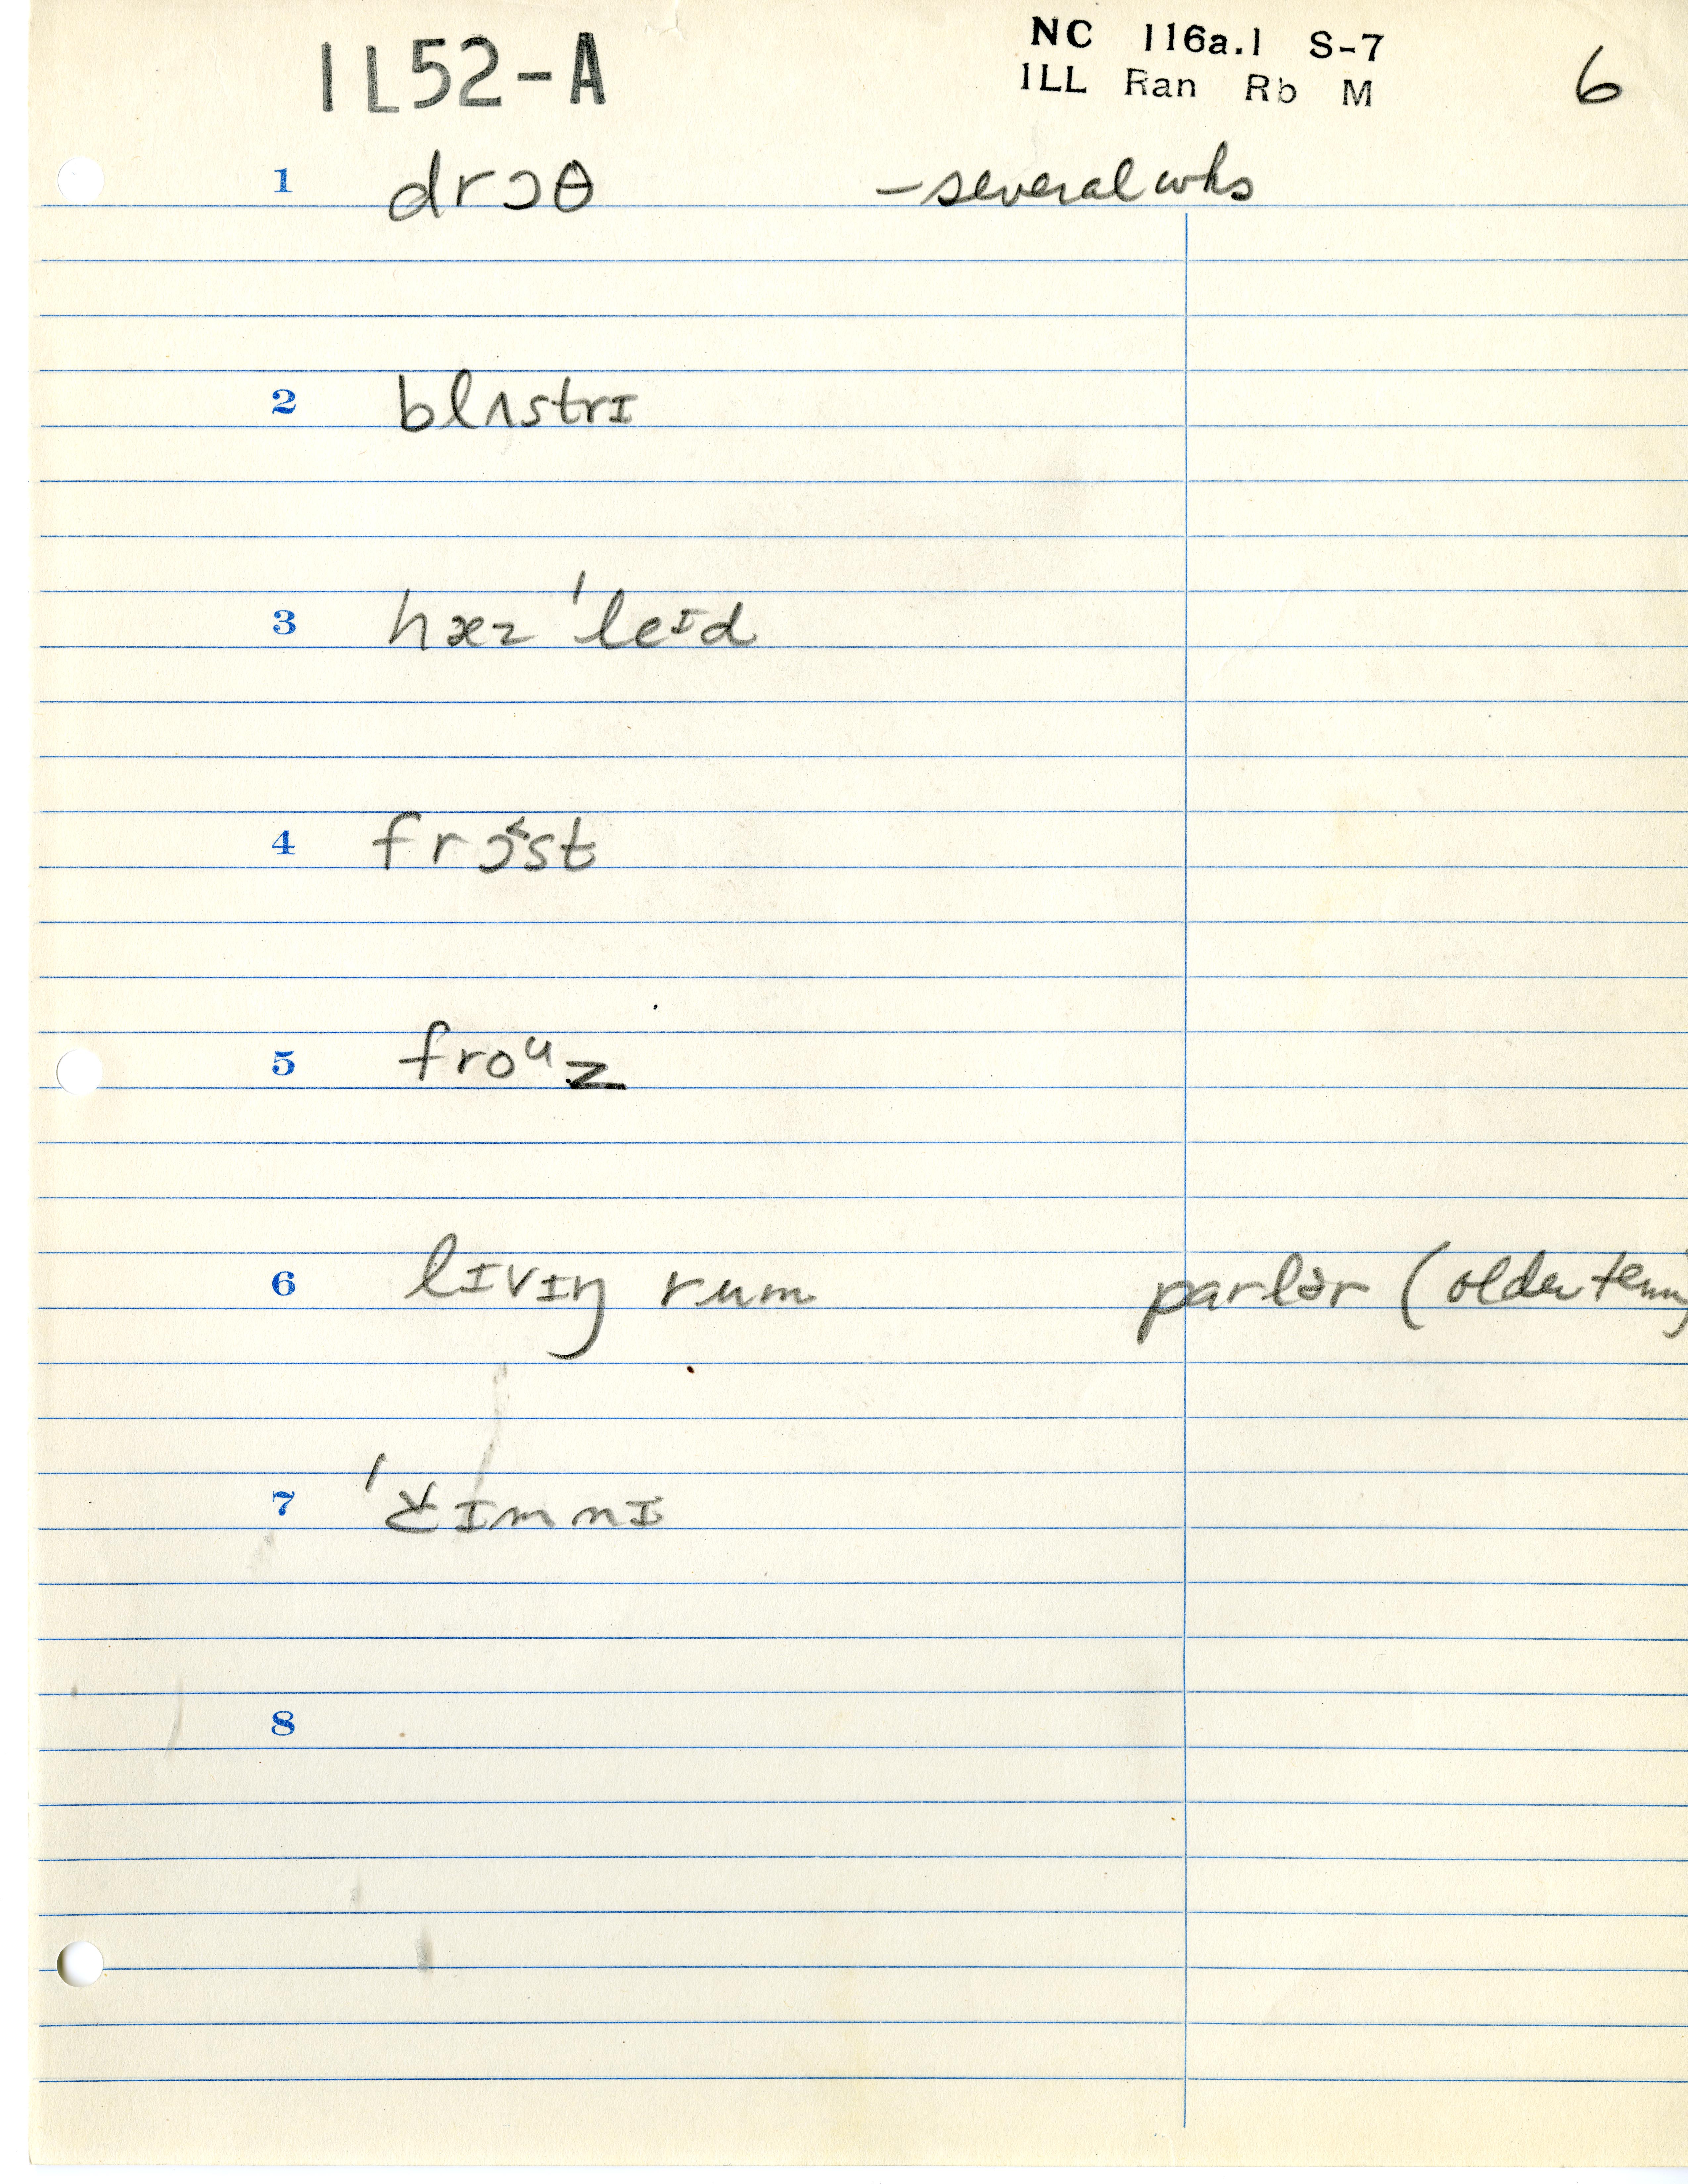 IL52-A
NC 116a.1 S-7
ILL Ran Rb M
6
1 drɔθ –several wks
2 blʌstrɪ
3 hæz 'leᶦd
4 frɔ˂st
5 froᵘz
6 lɪvɪŋ rum parlər (older term)
7 ɪmnɪ
8